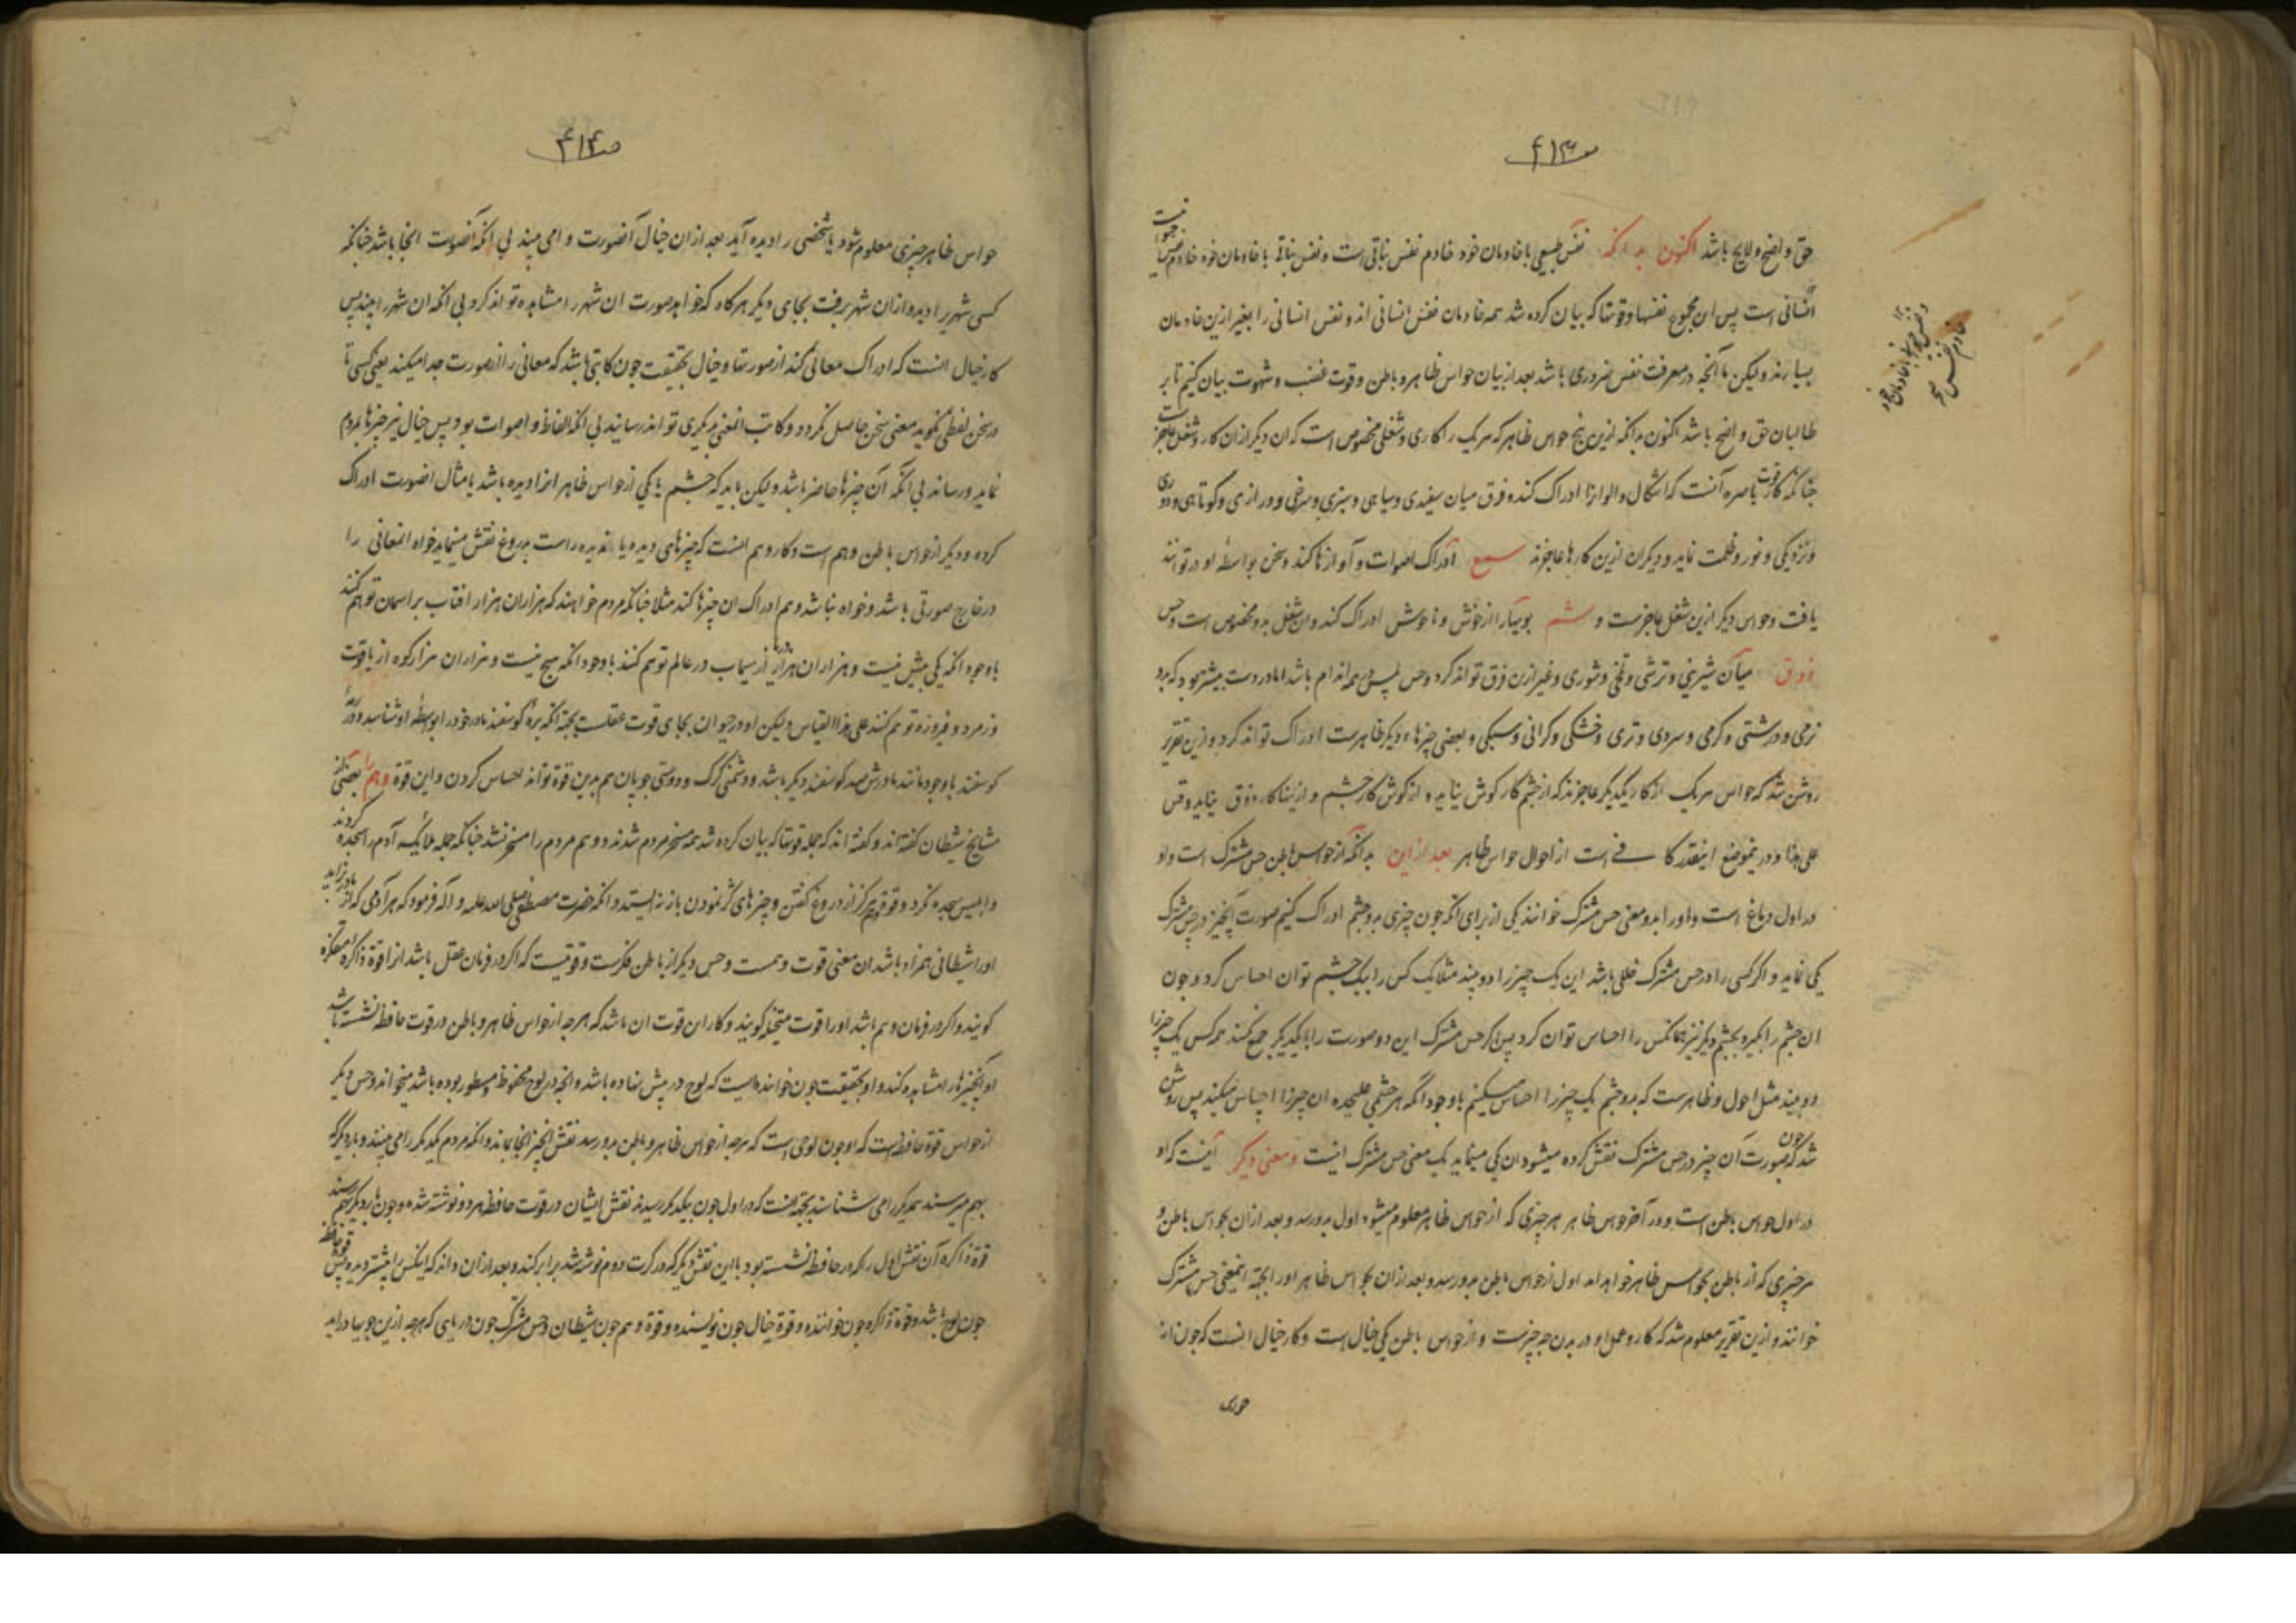 ص۴۱۳
حق واضح و لایح باشد اکنون بدانکه نفس طبیعی با خادمان خود خادم نفس نباتی است و نفس نباتی با خادمان خود خادم نفس حیوانیست
انسانی است پس این مجموع نفسها و قوتها که بیان کرده شد همه خادمان نفس انسانی اند و نفس انسانی را بغیر ازین خادمان
بسیارند ولیکن ما آنچه در معرفت نفس ضروری باشد بعد از بیان حواس ظاهر و باطن و قوت غضب و شهوت بیان کنیم تا بر
طالبان حق واضح باشد اکنون بدانکه ازین پنج حواس ظاهر که هر یک را کاری و شغلی مخصوص است که آن دیگر از آن کار و شغل عاجز است
چنانکه کار قوت باصره آنست که اشکال و الوان را ادراک کند و فرق میان سفیدی و سیاهی و سبزی و سرخی و درازی و کوتاهی و دوری
و نزدیکی و نور و ظلمت نماید و دیگران ازین کارها عاجزند سمع ادراک اصوات و آوازها کند و سخن بواسطهٔ او در توانند
یافت و حواس دیگر ازین شغل عاجزست و شم بویها را از خوش و ناخوش ادراک کند و آن شغل بدو مخصوص است و حس
ذوق میان شیرینی و ترشی و تلخی و شوری و غیر ازین فرق تواند کرد و حس لمس همه اندام باشد اما در دست بیشتر بود که بدو
نرمی و درشتی و گرمی و سردی و تری و خشکی و گرانی و سبکی و بعضی چیزهاء دیگر ظاهرست ادراک تواند کرد و ازین تقریر
روشن شد که حواس هر یک از کار یکدیگر عاجزند که از چشم کار گوش نیاید و از گوش کار چشم و ازینها کار ذوق نیاید و قس
علی هذا و درینموضع اینقدر کافی است از احوال حواس ظاهر بعد ازین بدانکه از حواس باطن حس مشترک است و او
در اول دماغ است و او را بدو معنی حس مشترک خوانند یکی از برای آنکه چون چیزی بدو چشم ادراک کنیم صورت آنچیز در حس مشترک
یکی نماید و اگر کسی را در حس مشترک خللی باشد این یک چیز را دو بیند مثلا یک کس را بیک چشم توان احساس کرد و چون
آن چشم را بگیرد بچشم دیگر نیز همانکس را احساس توان کرد پس اگر حس مشترک این دو صورت را با یکدیگر جمع نکند هر کس یک چیز را
دو بیند مثل احول و ظاهرست که بدو چشم یک چیز را احساس میکنیم با وجود آنکه هر چشمی علیحده آن چیز را احساس میکند پس روشن
شد که چون صورت آن چیز در حس مشترک نقش کرده میشود آن یکی مینماید یک معنی حس مشترک اینست و معنی دیگر آنست که او
در اول حواس باطن است و در آخر حواس ظاهر هر چیزی که از حواس ظاهر معلوم میشود اول بدو رسد و بعد از آن بحواس باطن و
هر چیزی که از باطن بحواس ظاهر خواهد آمد اول از حواس باطن بدو رسد و بعد از آن بحواس ظاهر او را بجهة اینمعنی حس مشترک
خوانند و ازین تقریر معلوم شد که کار و عمل او در بدن چه چیزست و از حواس باطن یکی خیال است و کار خیال آنست که چون از
ص۴۱۴
حواس ظاهر چیزی معلوم شود یا شخصی را دیده آید بعد از آن خیال آنصورت را می بیند بی آنکه آنصورت آنجا باشد چنانکه
کسی شهریرا دید و از آن شهر برفت بجای دیگر هر گاه که خواهد صورت آن شهر را مشاهده تواند کرد بی آنکه آن شهر را ببیند پس
کار خیال آنست که ادراک معانی کند از صورتها و خیال بحقیقت چون کاتبی باشد که معانی را از صورت جدا میکند یعنی کسی تا
در سخن لفظی نگوید معنی سخن حاصل نگردد و کاتب آنمعنی بدیگری تواند رسانید بی آنکه الفاظ و اصوات بود پس خیال نیز چیزها بمردم
نماید و رساند بی آنکه آن چیزها حاضر باشد ولیکن باید که چشم یا یکی از حواس ظاهر آنرا دیده باشد یا مثال آنصورت ادراک
کرده و دیگر از حواس باطن وهم است و کار وهم آنست که چیزهای دیده یا نادیده راست یا دروغ نقش مینماید خواه آنمعانی را
در خارج صورتی باشد و خواه نباشد وهم ادراک آن چیزها کند مثلا چنانکه مردم خواهند که هزاران هزار آفتاب بر آسمان توهم کنند
با وجود آنکه یکی بیش نیست و هزاران هزار دریا از سیماب در عالم توهم کنند با وجود آنکه هیچ نیست و هزاران هزار کوه از یاقوت
و زمرد و فیروزه توهم کنند علی هذا القیاس ولیکن او در حیوان بجای قوت عقلست بجهة آنکه برهٔ گوسفند مادر خود را بواسطه او شناسد و در رمه
گوسفند با وجود مانند مادرش صد گوسفند دیگر باشد و دشمنی گرگ و دوستی چوپان هم بدین قوة تواند احساس کردن و این قوة وهم را بعضی از
مشایخ شیطان گفته اند و گفته اند که جمله قوتها که بیان کرده شد همه مسخر مردم شدند و وهم مردم را مسخر نشد چنانکه جمله ملائکه آدم را سجده کردند
و ابلیس سجده نکرد و قوة وهم هرگز از دروغ گفتن و چیزهای کژ نمودن باز نه ایستد و آنکه حضرت مصطفی صلی الله علیه و آله فرمود که هر آدمی که از مادر بزاید
او را شیطانی همزاد باشد آن معنی قوت وهمست و حس دیگر از باطن فکرست و قوتیست که اگر در فرمان عقل باشد او را قوة ذاکره متفکره
گویند و اگر در فرمان وهم باشد او را قوت متخیله گویند و کار این قوت آن باشد که هر چه از حواس ظاهر و باطن در قوت حافظه نشسته باشد
او آنچیزها را مشاهده کند و او بحقیقت چون خواننده ایست که لوح در پیش نهاده باشد و آنچه در لوح محفوظ و مسطور بوده باشد میخواند و حس دیگر
از حواس قوة حافظه است که او چون لوحی است که هر چه از حواس ظاهر و باطن بدو رسد نقش آنچیز آنجا بماند و آنکه مردم یکدیگر را می بینند و باز دیگر که
بهم میرسند همدیگر را می شناسند بجهة آنست که در اول چون بیکدیگر رسیدند نقش ایشان در قوت حافظه هر دو نوشته شد و چون بار دیگر بهم رسند
قوة ذاکره آن نقش اول را که در حافظه نشسته بود با این نقش دیگر که در کرت دوم نوشته شد برابر کند و بعد از آن داند که اینکس را پیشتر دیده پس قوة حافظه
چون لوح باشد و قوة ذاکره چون خواننده و قوة خیال چون نویسنده و قوة وهم چون شیطان و حس مشترک چون دریایی که هر چه ازین جویها در آید